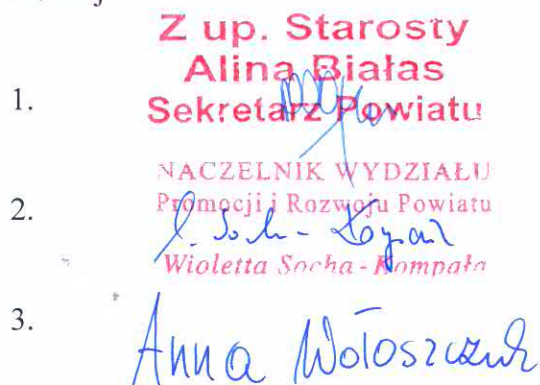 1.
Z up. Starosty
Alina Białas
Sekretarz Powiatu
2.
NACZELNIK WYDZIAŁU
Promocji i Rozwoju Powiatu
Wioletta Socha-Kompała
3.
Anna Wołoszczuk